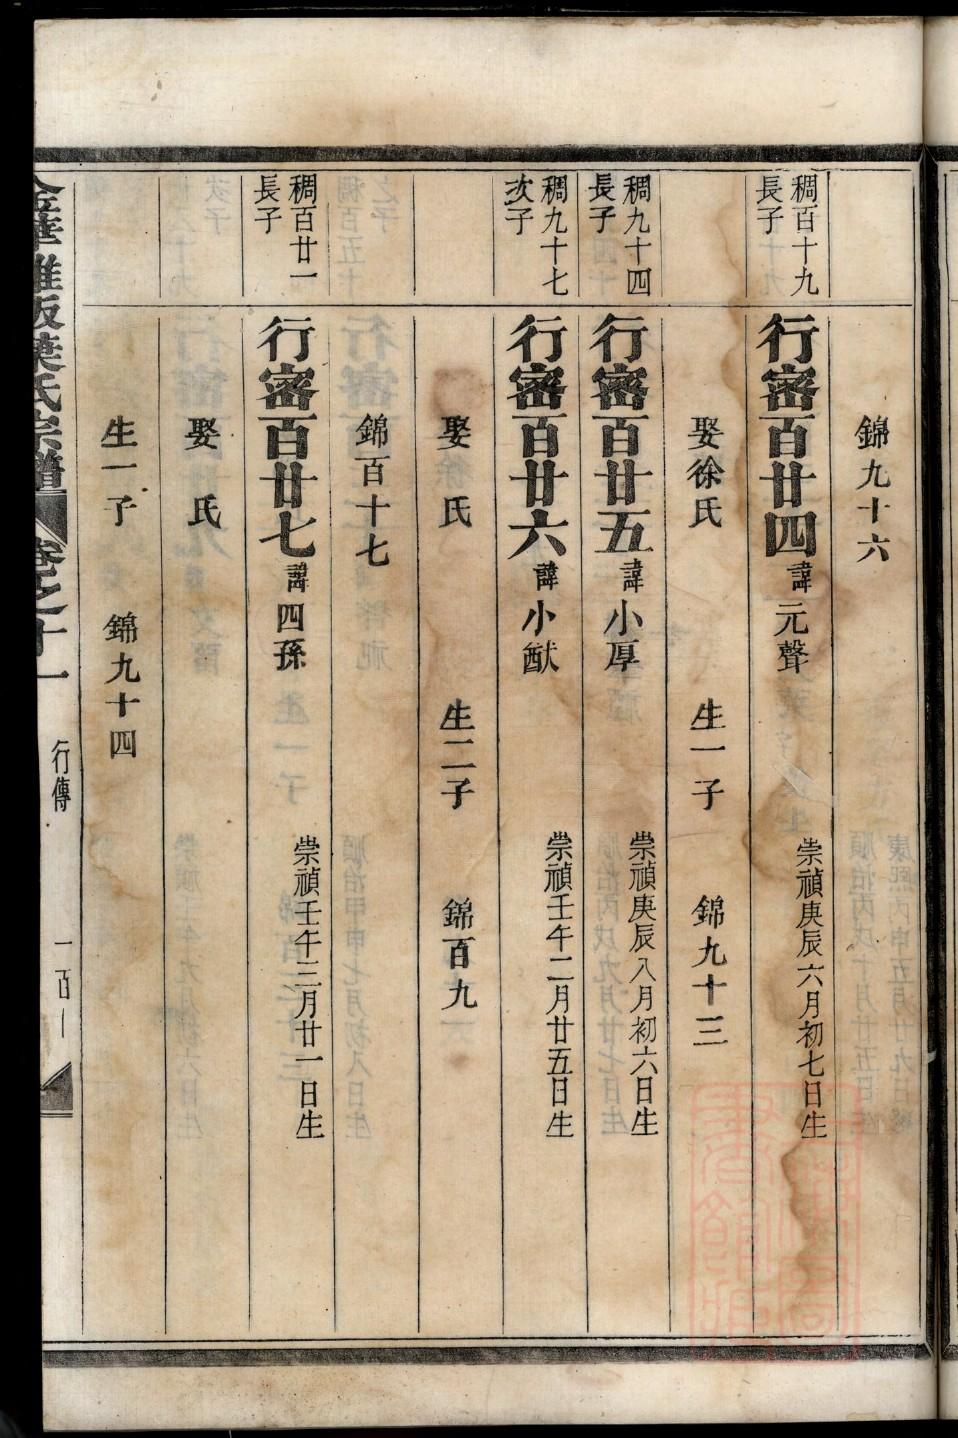 錦九十六
稠百十九
長子
行密百廿四 諱元聲 崇禎庚辰六月初七日生
娶徐氏 生一子 錦九十三
稠九十四
長子
行密百廿五 諱小厚 崇禎庚辰八月初六日生
稠九十七
次子
行密百廿六 諱小猷 崇禎壬午二月廿五日生
娶 氏 生二子 錦百九
錦百十七
稠百廿一
長子
行密百廿七 諱四孫 崇禎壬午三月廿一日生
娶 氏
生一子 錦九十四
金華雅畈葉氏宗譜 卷之十一 行傳 一百一